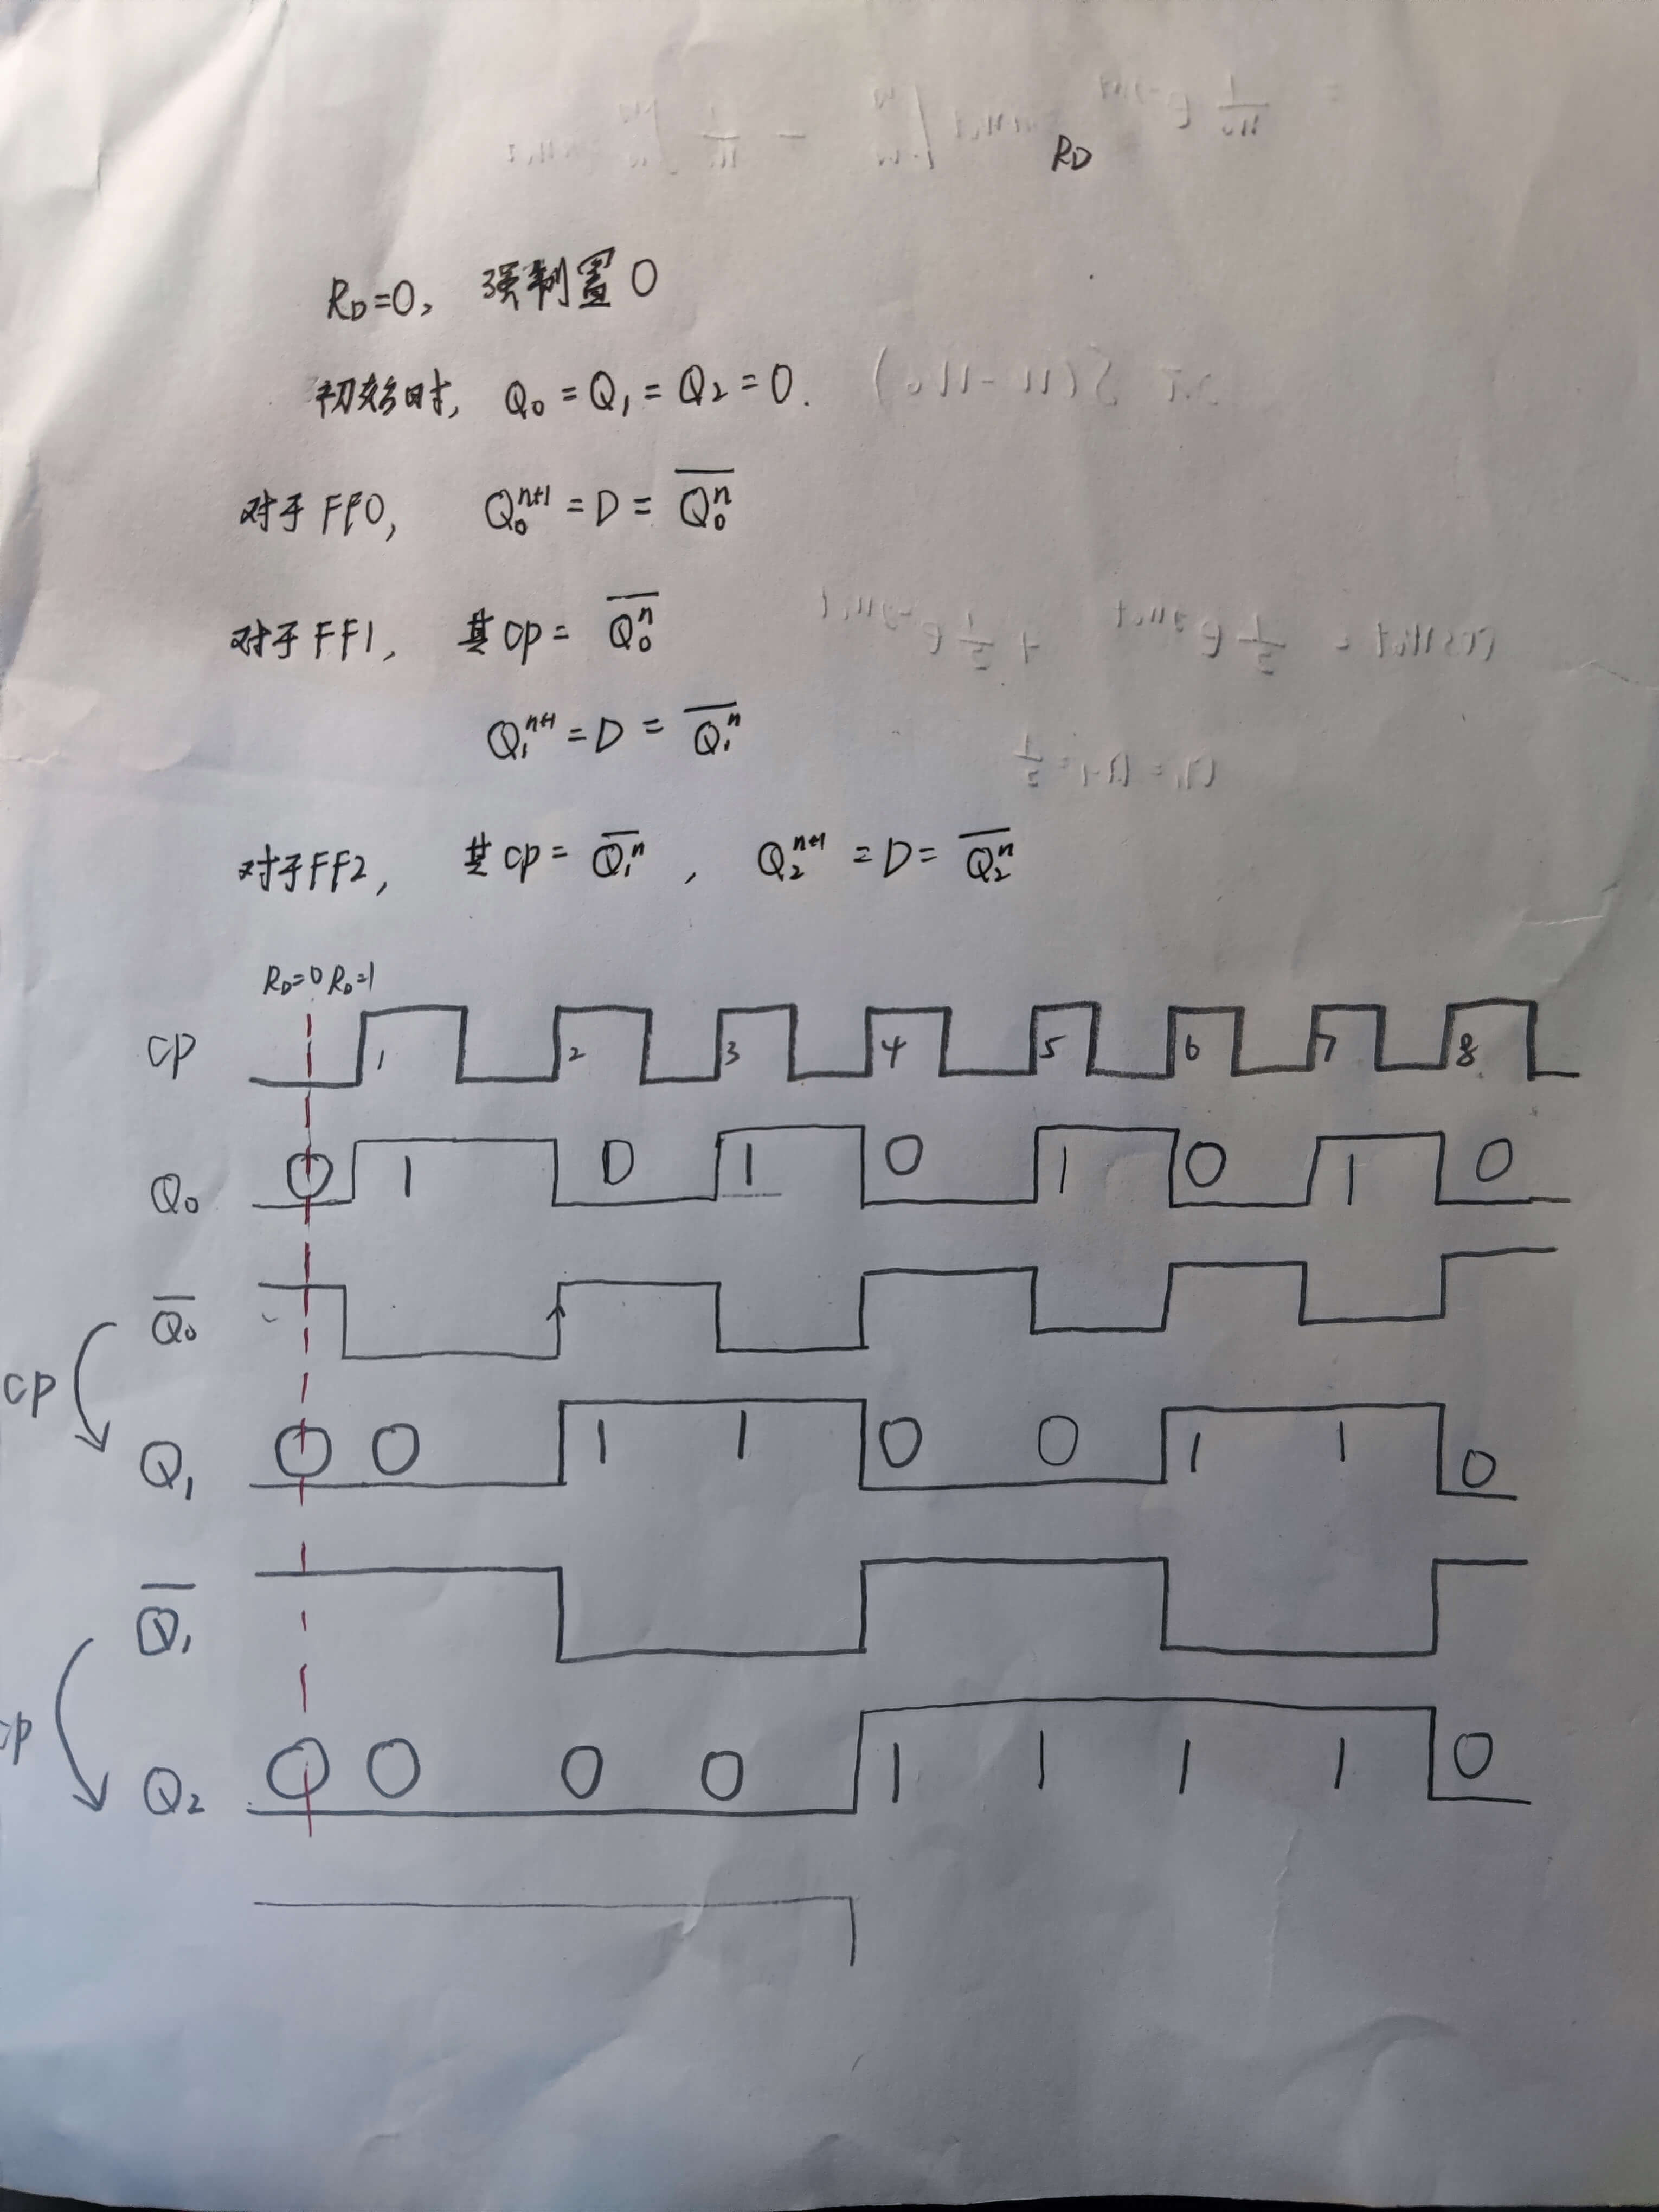 R_D
R_D=0, 强制置0
初始时, Q₀ = Q₁ = Q₂ = 0.
对于FF0, Q₀ⁿ⁺¹ = D = \overline{Q₀ⁿ}
对于FF1, 其cp = \overline{Q₀ⁿ}
Q₁ⁿ⁺¹ = D = \overline{Q₁ⁿ}
对于FF2, 其cp = \overline{Q₁ⁿ}, Q₂ⁿ⁺¹ = D = \overline{Q₂ⁿ}
R_D=0 R_D=1
cp 1 2 3 4 5 6 7 8
Q₀ 0 1 0 1 0 1 0 1 0
\overline{Q₀}
cp
Q₁ 0 0 1 1 0 0 1 1 0
\overline{Q₁}
cp
Q₂ 0 0 0 0 1 1 1 1 0